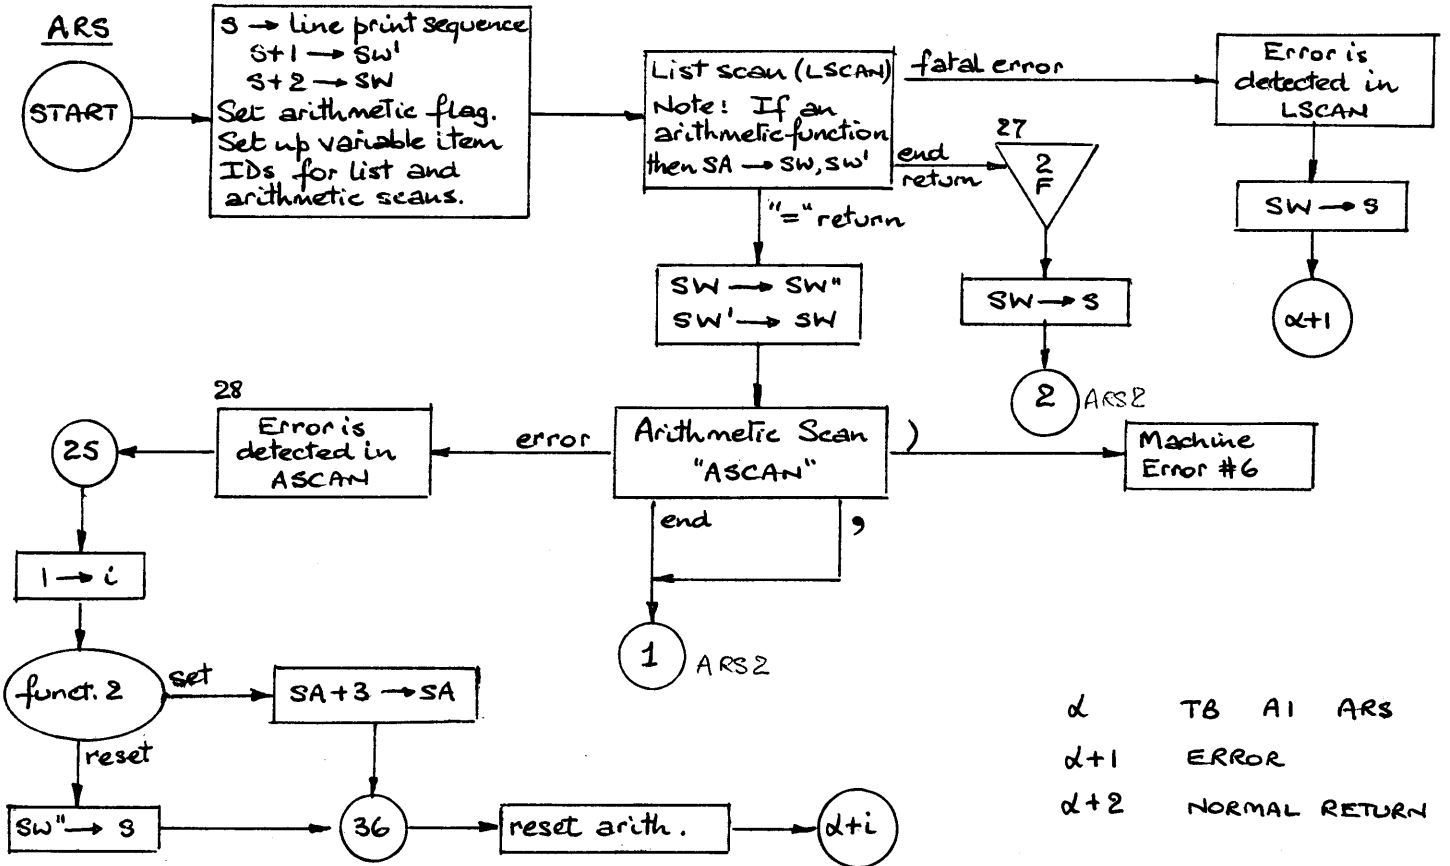 ARS
START
S → line print sequence
S+1 → SW'
S+2 → SW
Set arithmetic flag.
Set up variable item
IDs for list and
arithmetic scans.
List scan (LSCAN)
Note! If an
arithmetic function
then SA → SW, SW'
fatal error
Error is
detected in
LSCAN
SW → S
α+1
end
return
27
2
F
SW → S
2
ARS2
"=" return
SW → SW"
SW' → SW
Arithmetic Scan
"ASCAN"
)
Machine
Error #6
error
28
Error is
detected in
ASCAN
25
1 → i
funct. 2
set
SA+3 → SA
reset
SW" → S
36
reset arith.
α+i
end
,
1
ARS2
α TB A1 ARS
α+1 ERROR
α+2 NORMAL RETURN